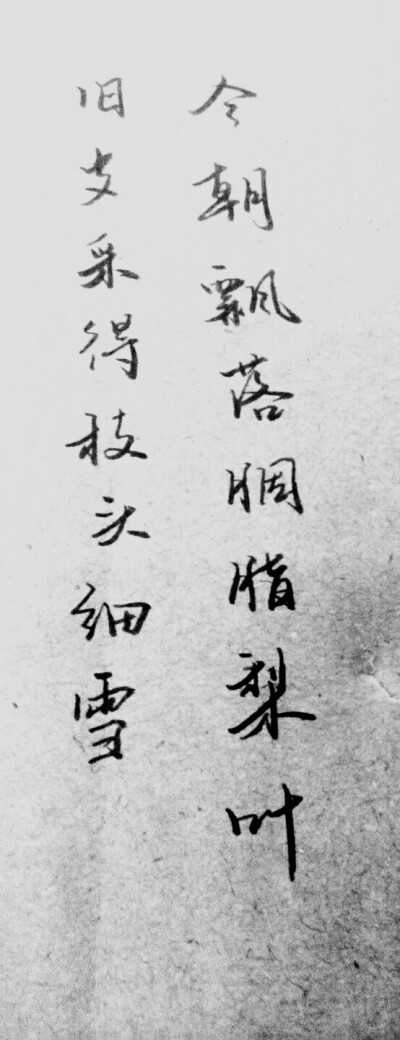 旧岁采得枝头细雪
今朝飘落胭脂梨叶